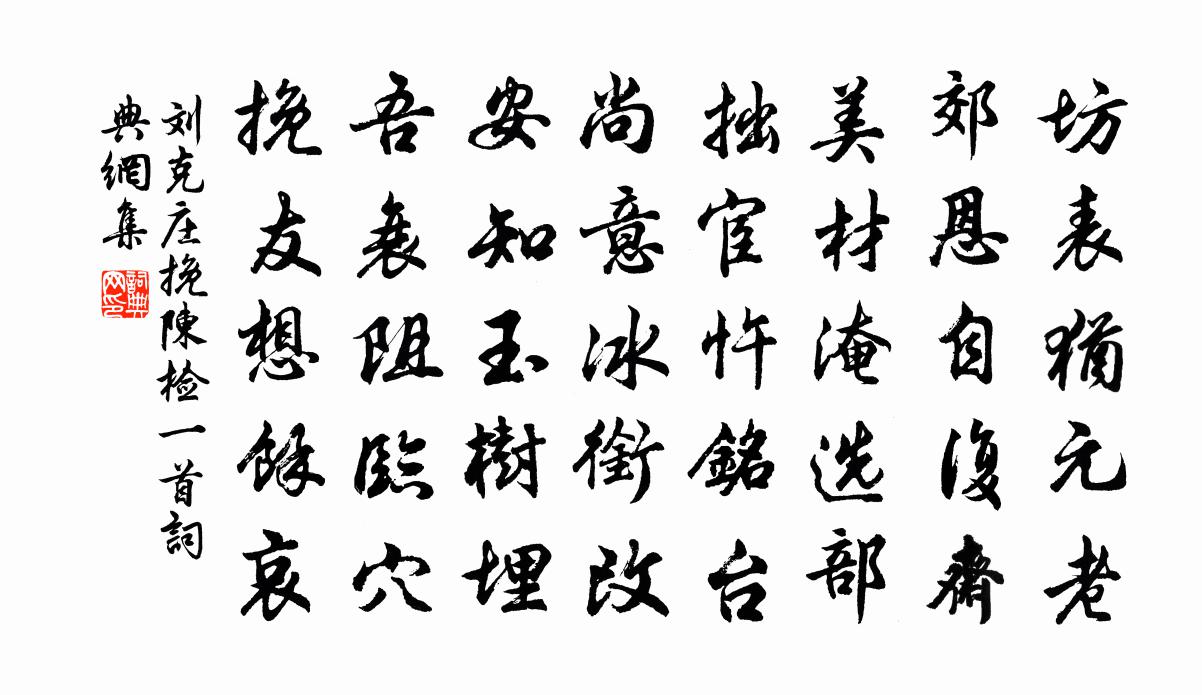 坊表猶元老
郊恩自復齋
美材淹选部
拙宦忤銘台
尚意冰銜改
安知玉樹埋
吾衰阻臨穴
挽友想餘哀
刘克庄挽陳检一首詞
典網集
詞典
网印